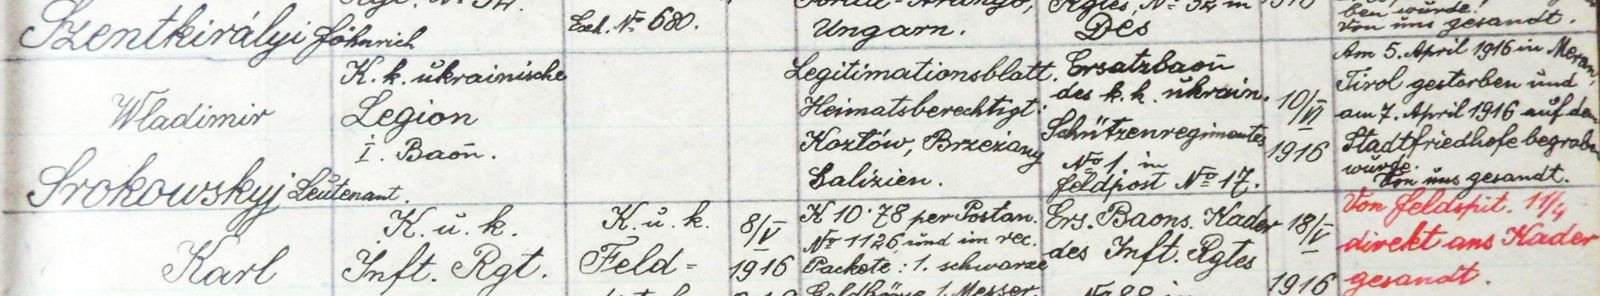 Szentkirályi Fähnrich
Exh. No 680.
Ungarn.
Des
ben wurde.
Von uns gesandt.
Wladimir
Srokowskyj Leutenant.
K. k. ukrainische
Legion
I. Baon.
Legitimationsblatt.
Heimatsberechtigt:
Kozlów, Brzezany
Galizien.
Ersatzbaon
des k. k. ukrain.
Schützenregimentes
No 1. in
Feldpost No 17.
10/VI
1916
Am 5. April 1916 in Meran,
Tirol gestorben und
am 7. April 1916 auf dem
Stadtfriedhofe begraben
wurde.
Von uns gesandt.
Karl
K. u. k.
Inft. Rgt.
K. u. k.
Feld=
8/V
1916
K 10·78 per Postan.
No 1126 und im rec.
Packete: 1. schwarze
1. Messer,
Ers. Baons. Kader
des Inft. Rgtes
18/V
1916
Von Feldspit. 11/4
direkt ans Kader
gesandt.